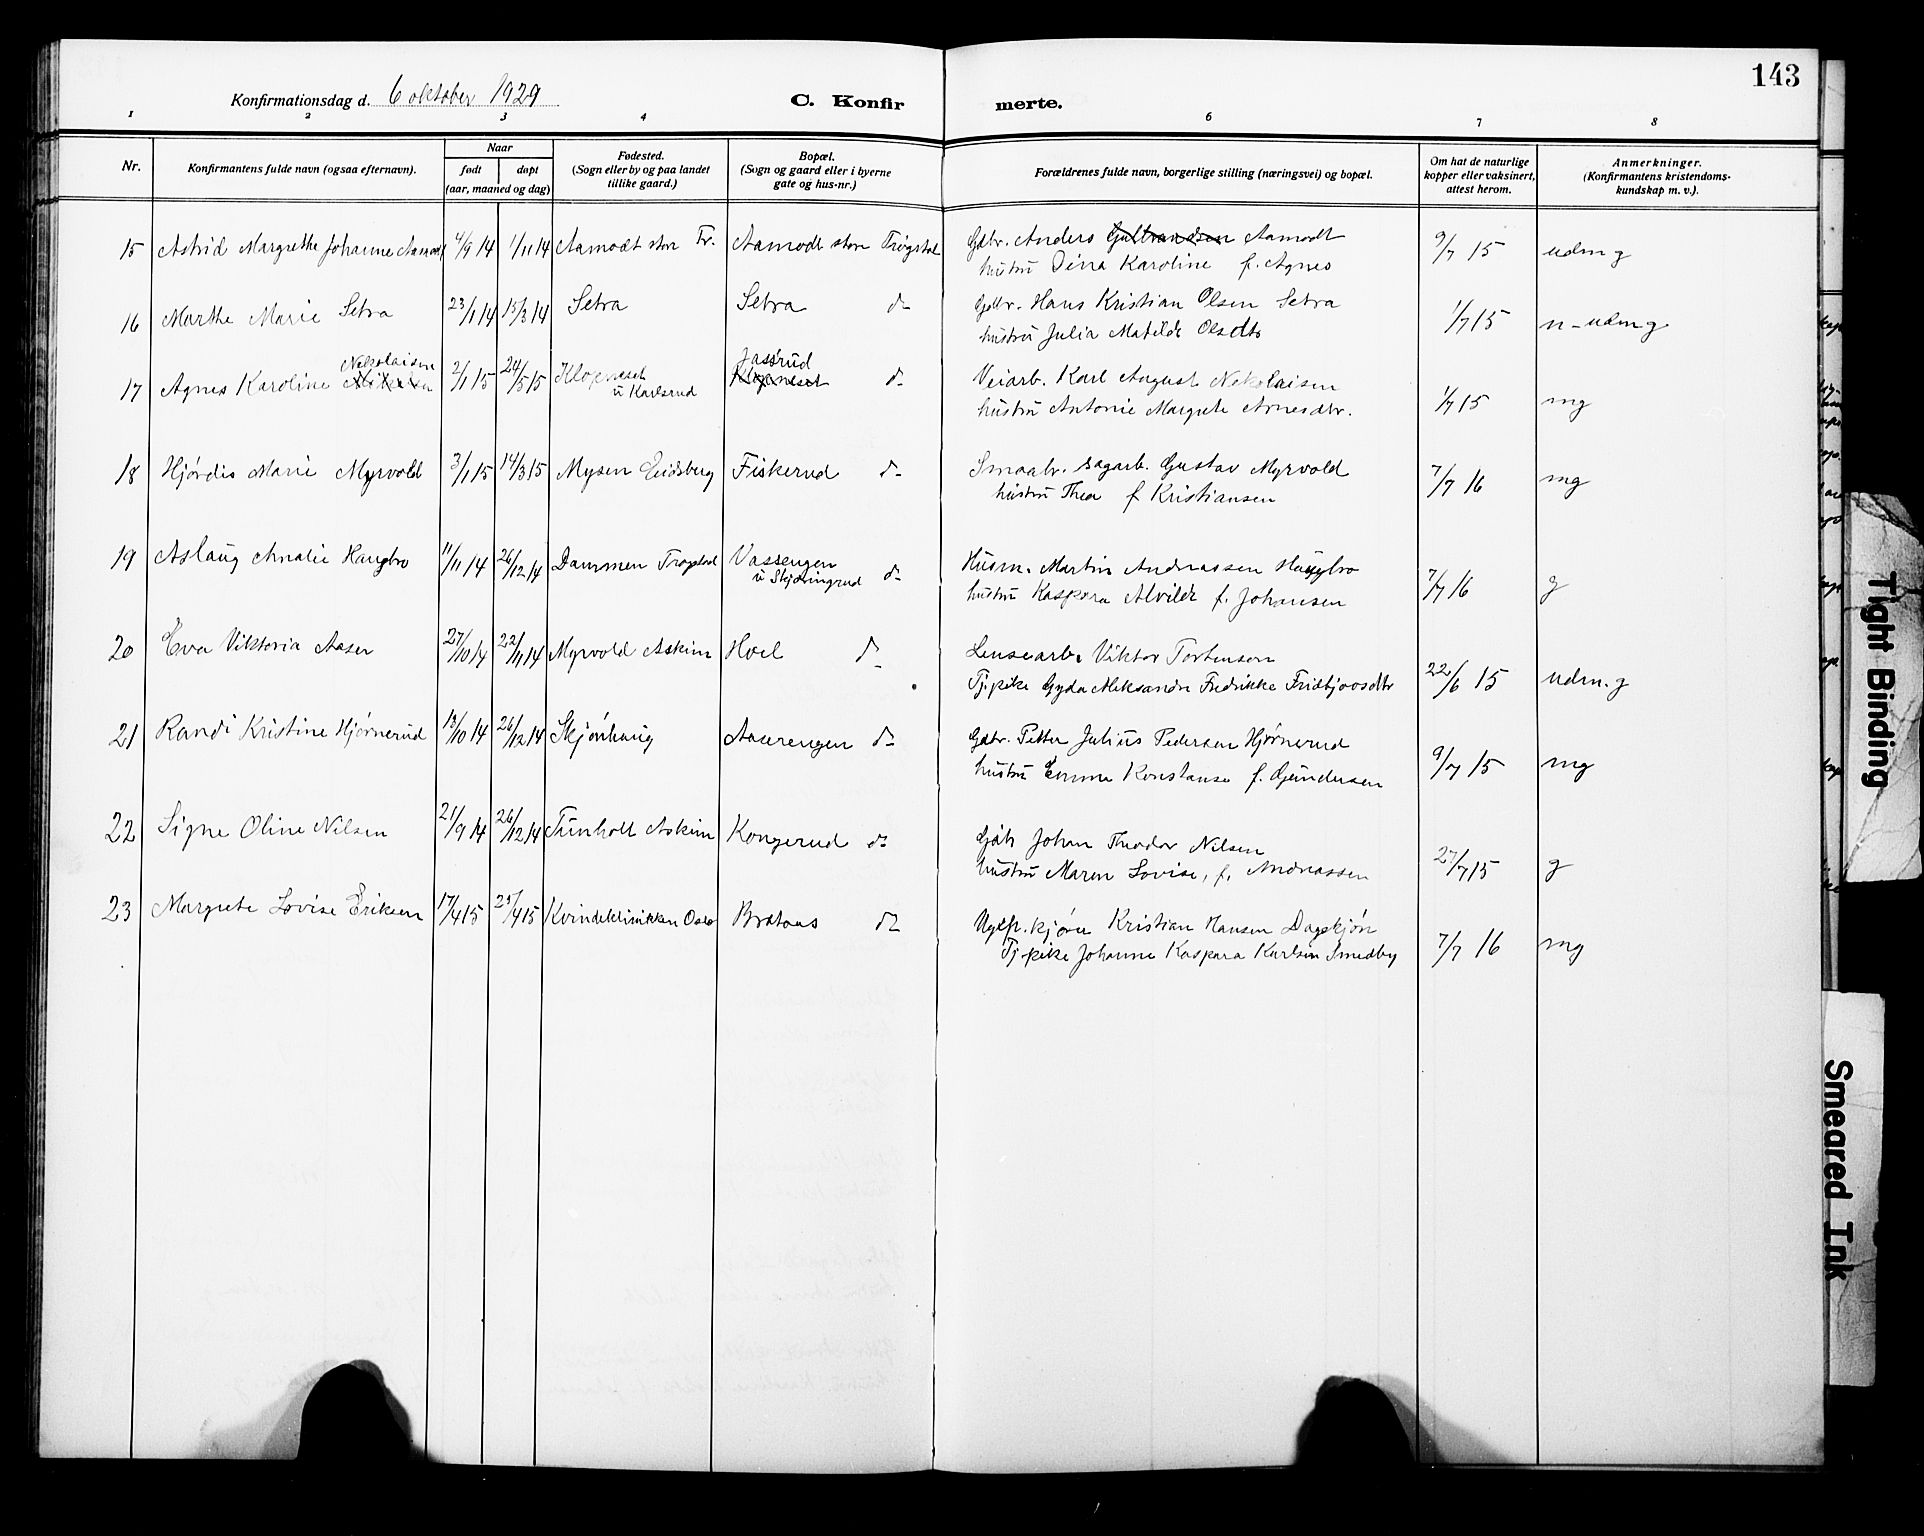 143
Konfirmationsdag d. 6 oktober 1929
C. Konfir merte.
1 2 3 4 6 7 8
Nr.
Konfirmantens fulde navn (ogsaa efternavn).
Naar
født døpt
(aar, maaned og dag)
Fødested.
(Sogn eller by og paa landet
tillike gaard.)
Bopæl.
(Sogn og gaard eller i byerne
gate og hus-nr.)
Forældrenes fulde navn, borgerlige stilling (næringsvei) og bopæl.
Om hat de naturlige
kopper eller vaksinert,
attest herom.
Anmerkninger.
(Konfirmantens kristendoms-
kundskap m. v.).
15 Astrid Margrethe Johanne Aamodt 4/9 14 1/11 14 Aamodt store Tr. Aamodt store Trøgstad Gbr. Anders Gulbrandsen Aamodt 9/7 15 udm g
hustru Dina Karoline f. Agnes
16 Marthe Marie Setra 23/1 14 15/3 14 Setra Setra d- Gbr. Hans Kristian Olsen Setra 1/7 15 n-udm g
hustru Julia Matilde Olsdtr
Nikolaisen Jassrud
17 Agnes Karoline 2/1 15 24/5 15 Klopneset Klopneset d- Veiarb. Karl August Nikolaisen 1/7 15 mg
u Karlsrud
hustru Antonie Margrete Arnesdtr.
18 Hjørdis Marie Myrvold 3/1 15 14/3 15 Mysen Eidsberg Fiskerud d- Smaabr. sagarb. Gustav Myrvold 7/7 16 mg
hustru Thea f Kristiansen
19 Aslaug Amalie Haugbro 11/11 14 26/12 14 Dammen Trøgstad Vassengen d- Husm. Martin Andreassen Haugbro 7/7 16 g
u Skjølingrud
hustru Kaspara Alvilde f. Johansen
20 Eva Viktoria Aasen 27/10 14 22/11 14 Myrvold Askim Hoel d- Lensearb. Viktor Torstensen 22/6 15 udm. g
Tj.pike Gyda Aleksandra Fredrikke Fridtjovsdtr
21 Randi Kristine Hjørnerud 18/10 14 26/12 14 Skjønhaug Aaserengen d- Gbr. Petter Julius Pedersen Hjørnerud 9/7 15 mg
hustru Emma Konstanse f. Gundersen
22 Signe Oline Nilsen 21/9 14 26/12 14 Tunholt Askim Kongerud d- Gbr Johan Theodor Nilsen 27/7 15 g
hustru Maren Lovise, f. Andreassen
23 Margrete Lovise Eriksen 17/4 15 25/4 15 Kvindeklinikken Oslo Brataas d- Kristian Hansen Dagskjøn 7/7 16 mg
Tj-pike Johanne Kaspara Karlsen Smedby
Tight Binding
Smeared Ink